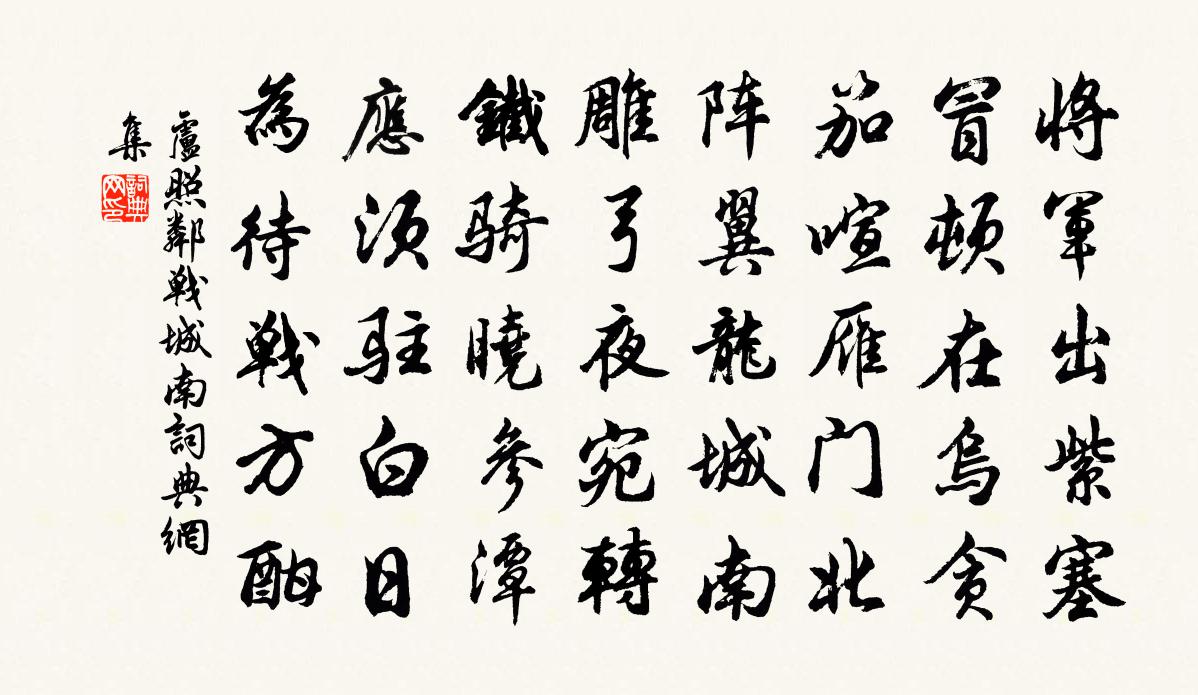 將軍出紫塞
冒頓在烏貪
笳喧雁门北
阵翼龍城南
雕弓夜宛轉
鐵骑曉參潭
應须驻白日
為待戰方酣
盧照鄰戰城南詞典網
集
詞典
网印